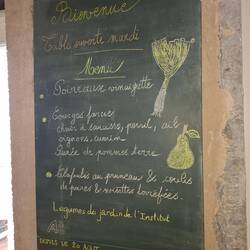 Bienvenue
Table ouverte mardi
Menu
Poireaux vinaigrette
Courges farcies
chair à saucisse, persil, ail
oignons, cumin.
Purée de pommes terre
Clafoutis au pruneau & coulis
de poires & noisettes torréfiées.
Légumes du jardin de l'Institut
DEPUIS LE 20 AOUT